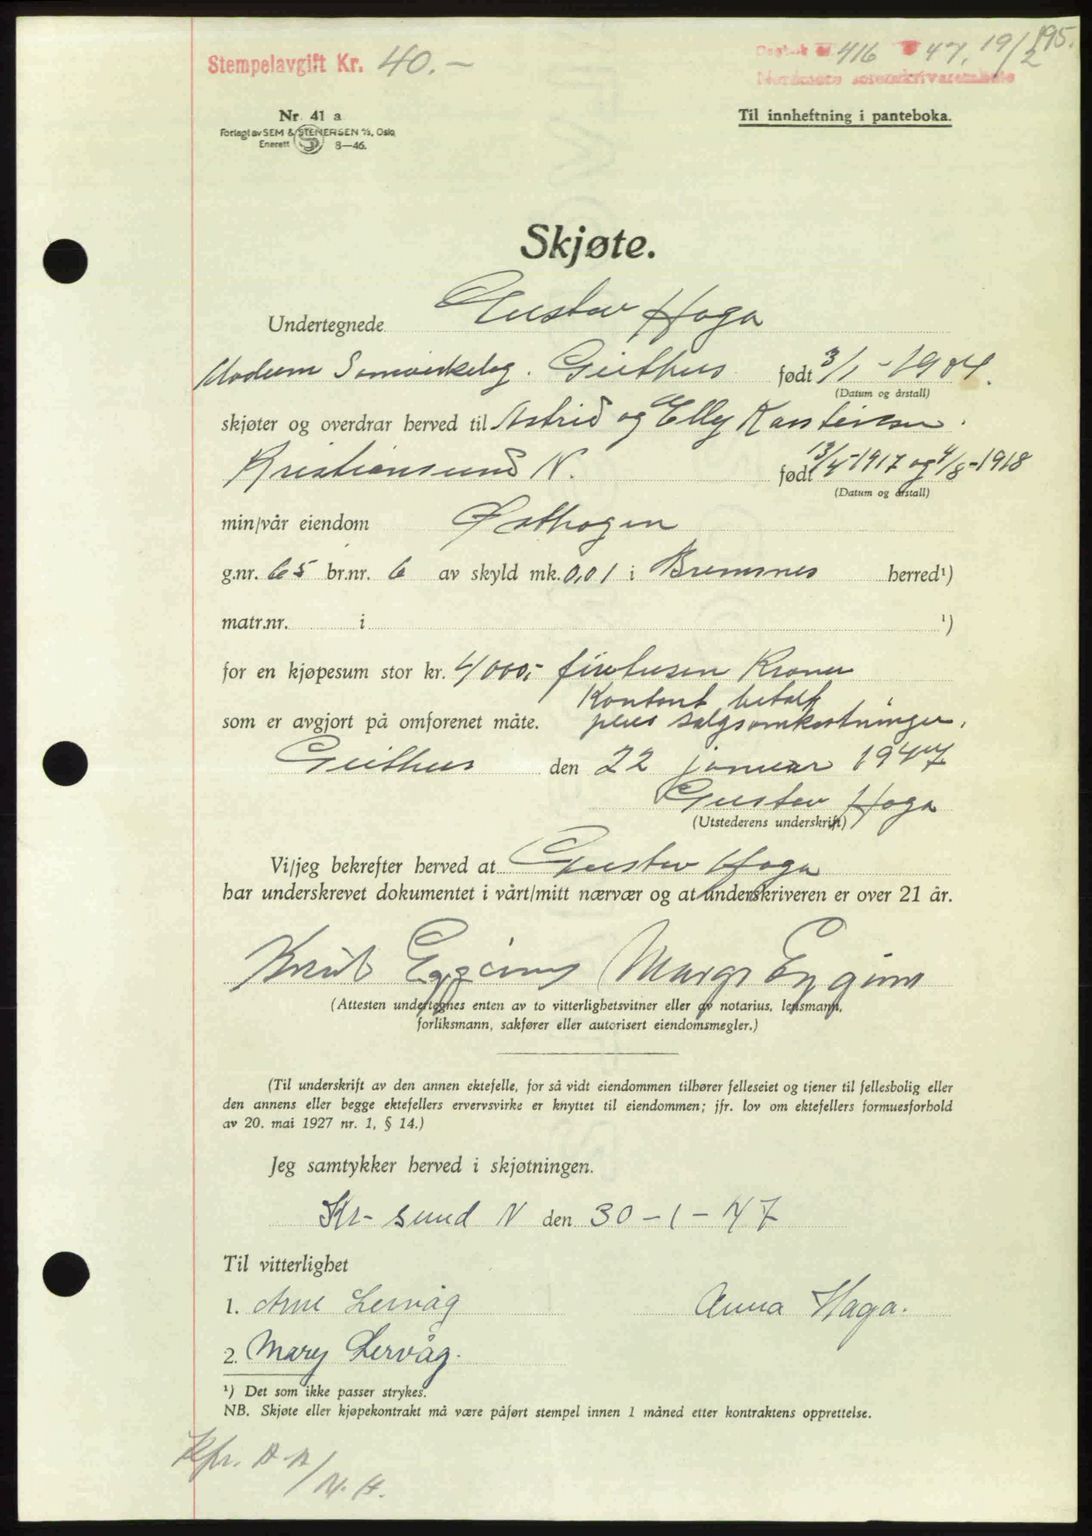 195.
Stempelavgift Kr. 40.-
Dagbok nr. 416 47. 19/2
Nordmøre sorenskriverembete
Nr. 41 a
Forlagt av SEM & STENERSEN A/S, Oslo
Enerett 8—46.
Til innheftning i panteboka.
Skjøte.
Undertegnede Gustav Haga
Modum Samvirkelag. Geithus født 3/1 - 1904.
(Datum og årstall)
skjøter og overdrar herved til Astrid og Elly Karstensen.
Kristiansund N. født 13/4-1917 og 4/8-1918
(Datum og årstall)
min/vår eiendom Østhagen
g.nr. 65 br.nr. 6 av skyld mk. 0,01 i Bremsnes herred¹)
matr.nr. i ¹)
for en kjøpesum stor kr. 4000,- firetusen Kroner
Kontant betalt
som er avgjort på omforenet måte. pluss salgsomkostninger.
Geithus den 22 januar 1947
Gustav Haga
(Utstederens underskrift)
Vi/jeg bekrefter herved at Gustav Haga
har underskrevet dokumentet i vårt/mitt nærvær og at underskriveren er over 21 år.
Knut Marge
(Attesten undertegnes enten av to vitterlighetsvitner eller av notarius, lensmann,
forliksmann, sakfører eller autorisert eiendomsmegler.)
(Til underskrift av den annen ektefelle, for så vidt eiendommen tilhører felleseiet og tjener til fellesbolig eller
den annens eller begge ektefellers ervervsvirke er knyttet til eiendommen; jfr. lov om ektefellers formuesforhold
av 20. mai 1927 nr. 1, § 14.)
Jeg samtykker herved i skjøtningen.
Kr-sund N den 30-1-47
Til vitterlighet
1. Arne Lervåg Anna Haga.
2. Mary Lervåg.
¹) Det som ikke passer strykes.
NB. Skjøte eller kjøpekontrakt må være påført stempel innen 1 måned etter kontraktens opprettelse.